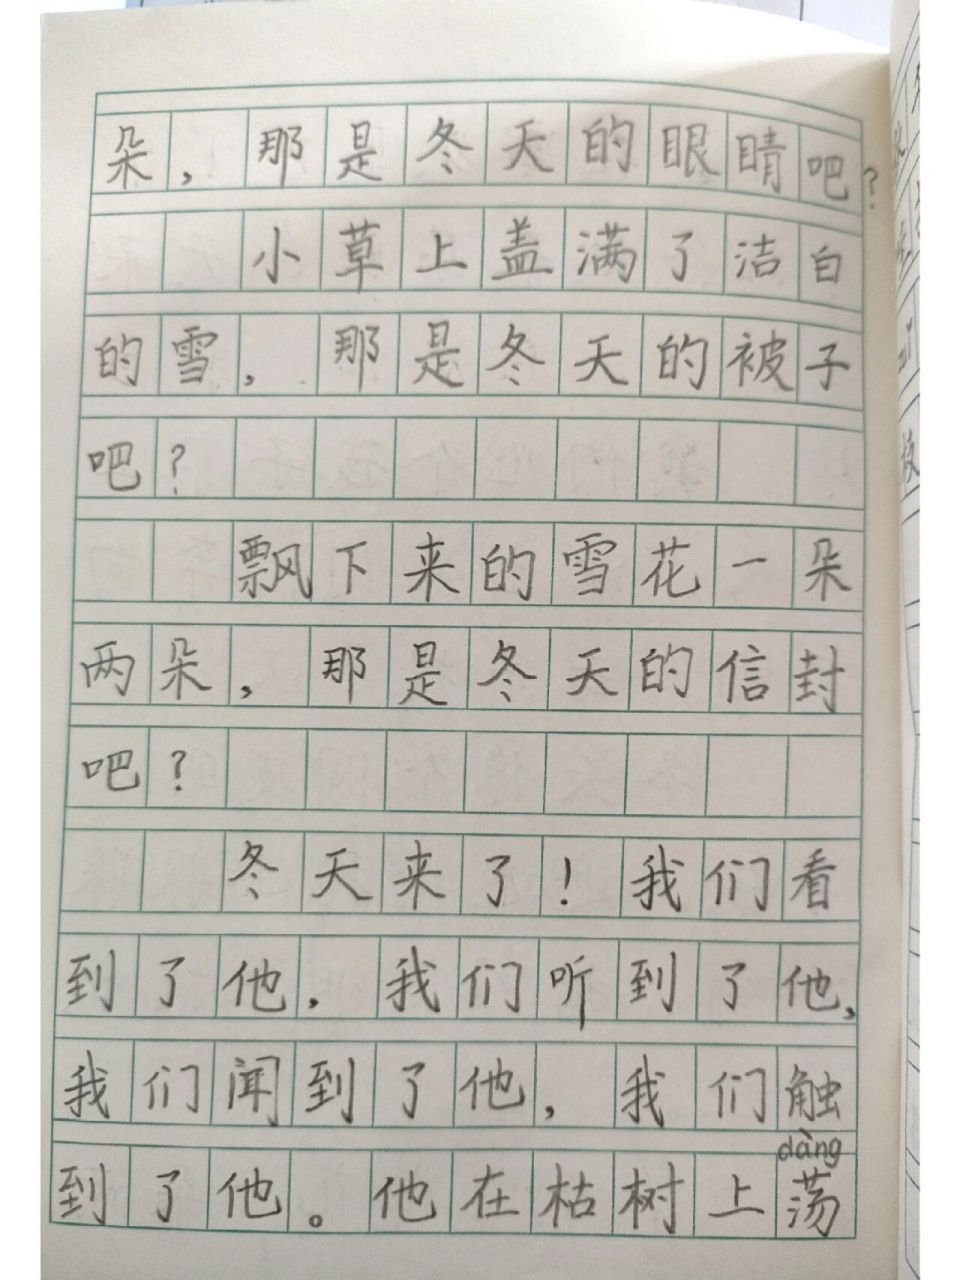 朵，那是冬天的眼睛吧？
小草上盖满了洁白
的雪，那是冬天的被子
吧？
飘下来的雪花一朵
两朵，那是冬天的信封
吧？
冬天来了！我们看
到了他，我们听到了他，
我们闻到了他，我们触
dàng
到了他。他在枯树上荡